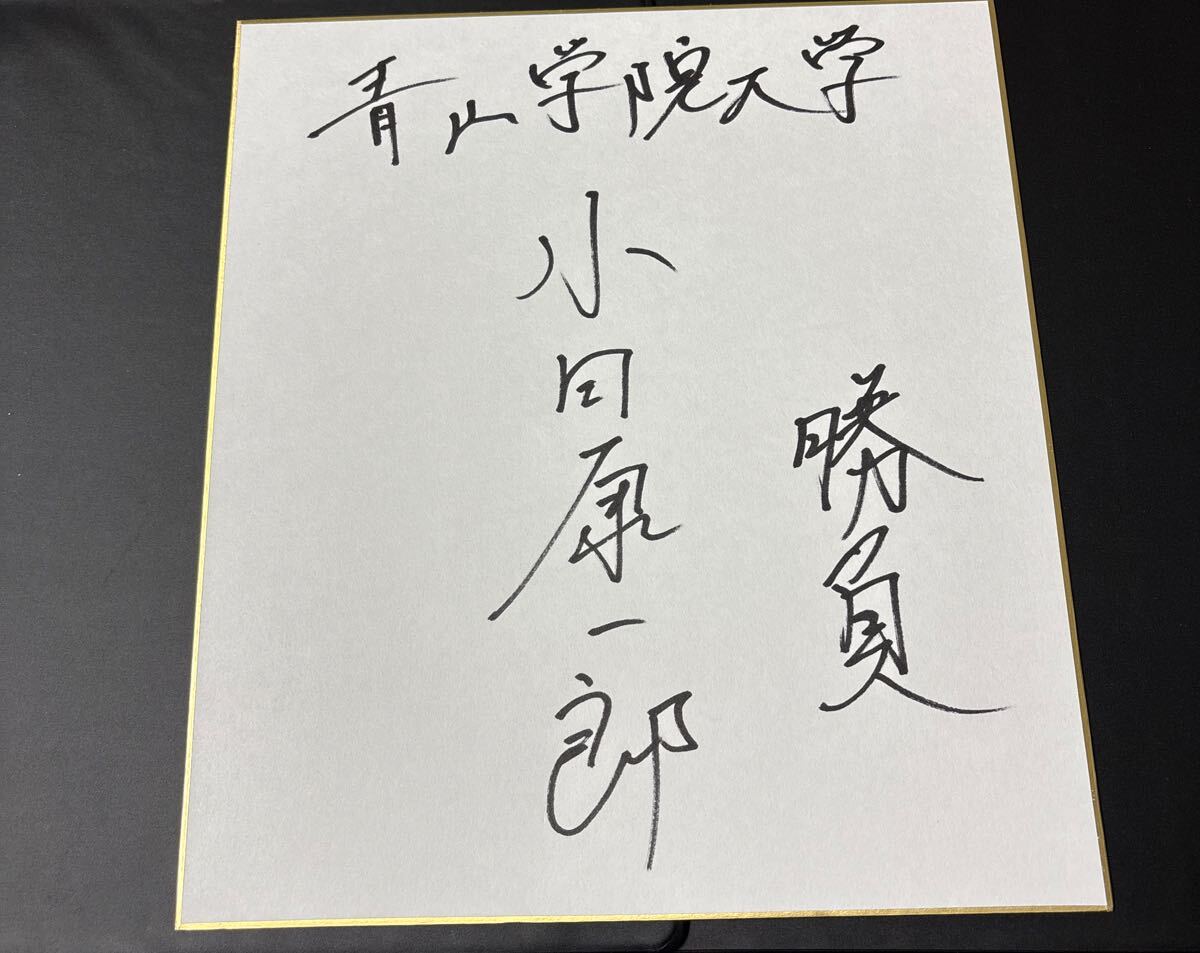 青山学院大学
勝負
小田原一郎